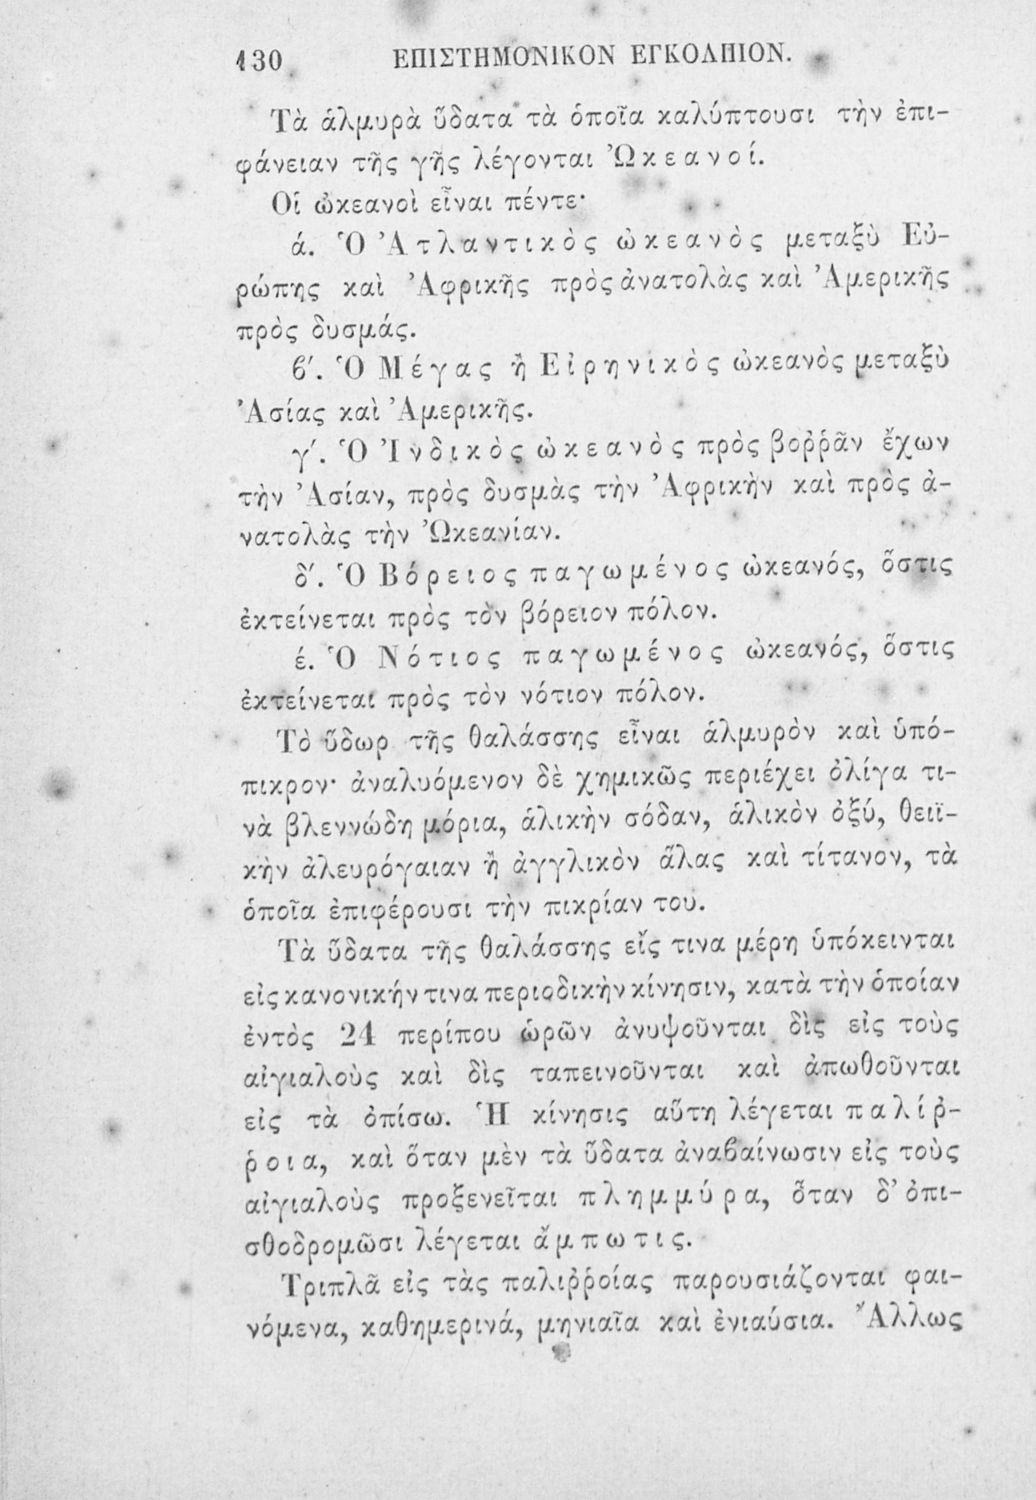 130 ΕΠΙΣΤΗΜΟΝΙΚΟΝ ΕΓΚΟΛΠΙΟΝ.
Τὰ ἁλμυρὰ ὕδατα τὰ ὁποῖα καλύπτουσι τὴν ἐπι-
φάνειαν τῆς γῆς λέγονται Ὠκεανοί.
Οἱ ὠκεανοὶ εἶναι πέντε·
ά. Ὁ Ἀτλαντικὸς ὠκεανὸς μεταξὺ Εὐ-
ρώπης καὶ Ἀφρικῆς πρὸς ἀνατολὰς καὶ Ἀμερικῆς
πρὸς δυσμάς.
ϐ΄. Ὁ Μέγας ἢ Εἰρηνικὸς ὠκεανὸς μεταξὺ
Ἀσίας καὶ Ἀμερικῆς.
γ΄. Ὁ Ἰνδικὸς ὠκεανὸς πρὸς βοῤῥᾶν ἔχων
τὴν Ἀσίαν, πρὸς δυσμὰς τὴν Ἀφρικὴν καὶ πρὸς ἀ-
νατολὰς τὴν Ὠκεανίαν.
δ΄. Ὁ Βόρειος παγωμένος ὠκεανός, ὅστις
ἐκτείνεται πρὸς τὸν βόρειον πόλον.
έ. Ὁ Νότιος παγωμένος ὠκεανός, ὅστις
ἐκτείνεται πρὸς τὸν νότιον πόλον.
Τὸ ὕδωρ τῆς θαλάσσης εἶναι ἁλμυρὸν καὶ ὑπό-
πικρον· ἀναλυόμενον δὲ χημικῶς περιέχει ὀλίγα τι-
νὰ βλεννώδη μόρια, ἁλικὴν σόδαν, ἁλικὸν ὀξύ, θειϊ-
κὴν ἀλευρόγαιαν ἢ ἀγγλικὸν ἅλας καὶ τίτανον, τὰ
ὁποῖα ἐπιφέρουσι τὴν πικρίαν του.
Τὰ ὕδατα τῆς θαλάσσης εἴς τινα μέρη ὑπόκεινται
εἰς κανονικήν τινα περιοδικὴν κίνησιν, κατὰ τὴν ὁποίαν
ἐντὸς 24 περίπου ὡρῶν ἀνυψοῦνται δὶς εἰς τοὺς
αἰγιαλοὺς καὶ δὶς ταπεινοῦνται καὶ ἀπωθοῦνται
εἰς τὰ ὀπίσω. Ἡ κίνησις αὕτη λέγεται παλίῤ-
ῥοια, καὶ ὅταν μὲν τὰ ὕδατα ἀναϐαίνωσιν εἰς τοὺς
αἰγιαλοὺς προξενεῖται πλημμύρα, ὅταν δ’ ὀπι-
σθοδρομῶσι λέγεται ἄμπωτις.
Τριπλᾶ εἰς τὰς παλιῤῥοίας παρουσιάζονται φαι-
νόμενα, καθημερινά, μηνιαῖα καὶ ἐνιαύσια. Ἄλλως